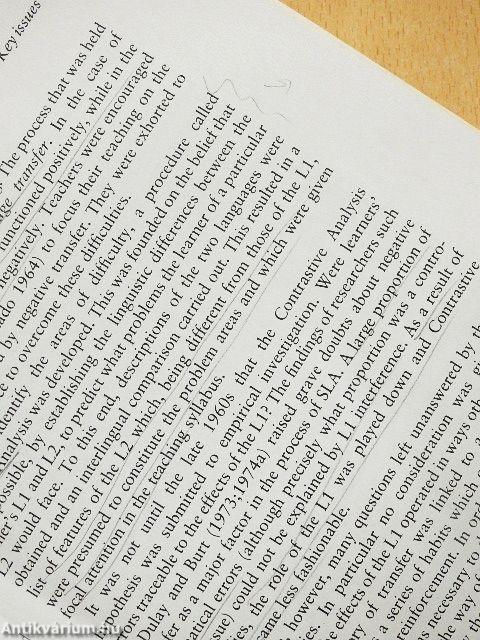 Key issues
. The process that was held
ge transfer. In the case of
unctioned positively, while in the
negatively. Teachers were encouraged
do 1964) to focus their teaching on the
d by negative transfer. They were exhorted to
e to overcome these difficulties.
identify the areas of difficulty, a procedure called
Analysis was developed. This was founded on the belief that
possible, by establishing the linguistic differences between the
er's L1 and L2 to predict what problems the learner of a particular
L2 would face. To this end, descriptions of the two languages were
obtained and an interlingual comparison carried out. This resulted in a
list of features of the L2 which, being different from those of the L1,
were presumed to constitute the problem areas and which were given
focal attention in the teaching syllabus.
It was not until the late 1960s that the Contrastive Analysis
pothesis was submitted to empirical investigation. Were learners'
ors traceable to the effects of the L1? The findings of researchers such
Dulay and Burt (1973, 1974a) raised grave doubts about negative
fer as a major factor in the process of SLA. A large proportion of
atical errors (although precisely what proportion was a contro-
issue) could not be explained by L1 interference. As a result of
ies, the role of the L1 was played down and Contrastive
ame less fashionable.
however, many questions left unanswered by th
ies. In particular no consideration was giv
e effects of the L1 operated in ways oth
y of transfer was linked to a
a series of habits which
einforcement. In ord
necessary to
the
Antikvárium.hu